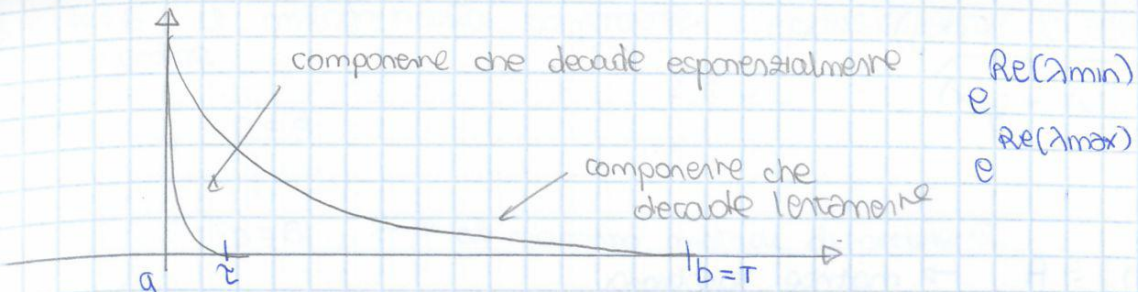 componente che decade esponenzialmente
e^Re(λmin)
e^Re(λmax)
componente che
decade lentamente
a
τ
b=T